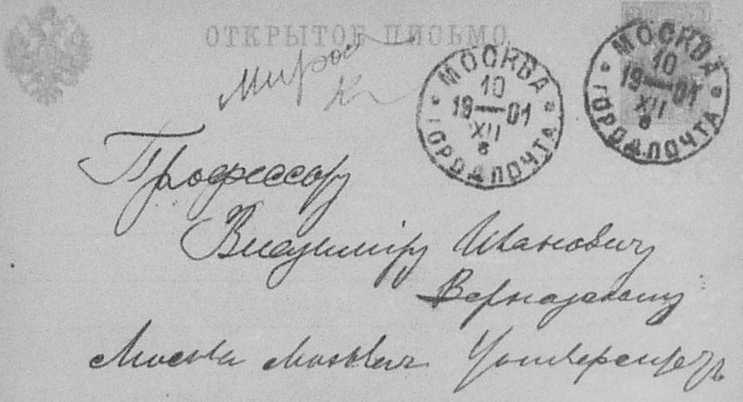 ОТКРЫТОЕ ПИСЬМО.
МОСКВА
10
19—01
XII
8
ГОРОД.ПОЧТА
МОСКВА
10
19—01
XII
8
ГОРОД.ПОЧТА
Профессору
Владиміру Ивановичу
Вернадскому
Москва Университетъ